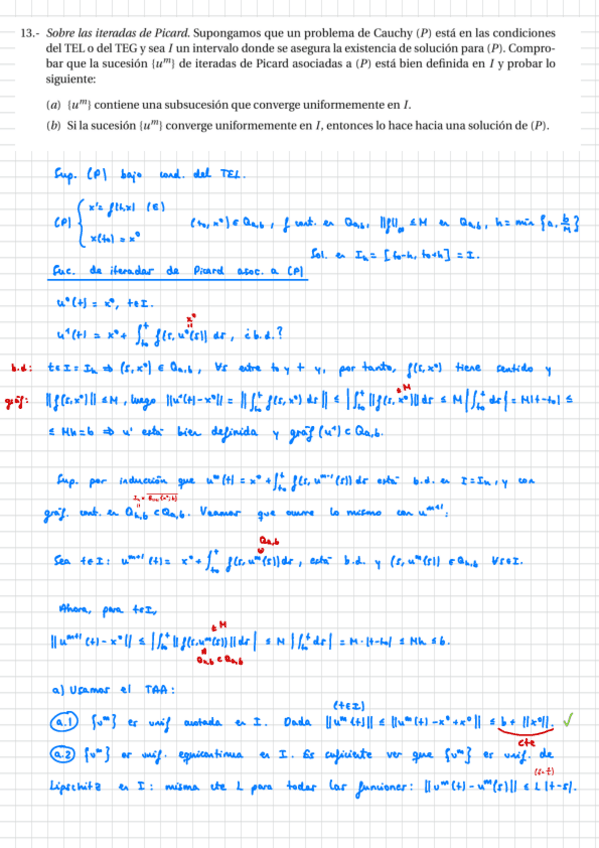 13.- Sobre las iteradas de Picard. Supongamos que un problema de Cauchy (P) está en las condiciones
del TEL o del TEG y sea I un intervalo donde se asegura la existencia de solución para (P). Compro-
bar que la sucesión {uᵐ} de iteradas de Picard asociadas a (P) está bien definida en I y probar lo
siguiente:
(a) {uᵐ} contiene una subsucesión que converge uniformemente en I.
(b) Si la sucesión {uᵐ} converge uniformemente en I, entonces lo hace hacia una solución de (P).
Sup. (P) bajo cond. del TEL.
(P) { x' = f(t,x) (E)
x(t₀) = x⁰
(t₀, x⁰) ∈ Qa,b, f cont. en Qa,b, ||f|| ≤ M en Qa,b, h = min {a, b/M}
Sol. en Iₕ = [t₀-h, t₀+h] = I.
Suc. de iteradas de Picard asoc. a (P)
u⁰(t) = x⁰, t ∈ I.
x⁰
u¹(t) = x⁰ + ∫ₜ₀ᵗ f(s, u⁰(s)) ds, ¿b.d.?
b.d: t ∈ I = Iₕ ⇒ (s, x⁰) ∈ Qa,b, ∀s entre t₀ y t y, por tanto, f(s, x⁰) tiene sentido y
≤ M
gráf: ||f(s, x⁰)|| ≤ M, luego ||u¹(t) - x⁰|| = ||∫ₜ₀ᵗ f(s, x⁰) ds|| ≤ |∫ₜ₀ᵗ ||f(s, x⁰)|| ds| ≤ M |∫ₜ₀ᵗ ds| = M|t-t₀| ≤
≤ Mh = b ⇒ u¹ está bien definida y gráf (u¹) ⊂ Qa,b.
Sup. por inducción que uᵐ(t) = x⁰ + ∫ₜ₀ᵗ f(s, uᵐ⁻¹(s)) ds está b.d. en I = Iₕ, y con
gráf. cont. en Qh,b ⊂ Qa,b. Veamos que ocurre lo mismo con uᵐ⁺¹:
Qa,b
Sea t ∈ I: uᵐ⁺¹(t) = x⁰ + ∫ₜ₀ᵗ f(s, uᵐ(s)) ds, está b.d. y (s, uᵐ(s)) ∈ Qa,b ∀s ∈ I.
Ahora, para t ∈ I,
≤ M
||uᵐ⁺¹(t) - x⁰|| ≤ |∫ₜ₀ᵗ ||f(s, uᵐ(s))|| ds| ≤ M |∫ₜ₀ᵗ ds| = M·|t-t₀| ≤ Mh ≤ b.
Qh,b ⊂ Qa,b
a) Usamos el TAA:
(t∈I)
a.1) {uᵐ} es unif acotada en I. Dada ||uᵐ(t)|| ≤ ||uᵐ(t) - x⁰ + x⁰|| ≤ b + ||x⁰||. ✓
cte
a.2) {uᵐ} es unif. equicontinua en I. Es suficiente ver que {uᵐ} es unif. de
Lipschitz en I: misma cte L para todas las funciones: ||uᵐ(t) - uᵐ(s)|| ≤ L|t-s|.